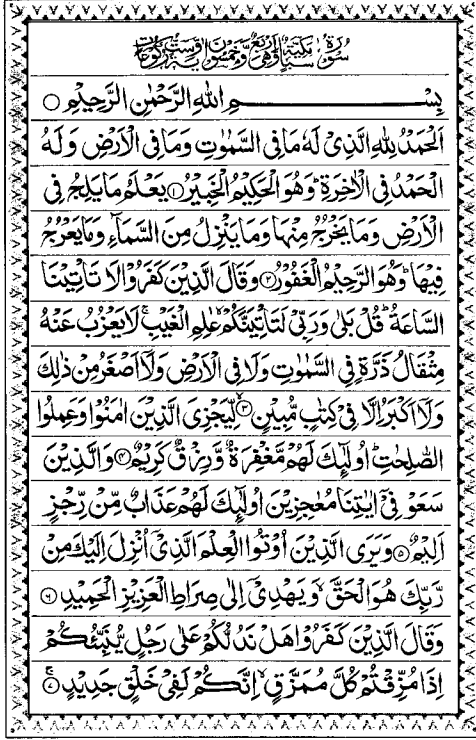 سُوْرَةُ سَبَاٍ مَكِّيَّةٌ وَّهِيَ اَرْبَعٌ وَّخَمْسُوْنَ اٰيَةً وَّسِتُّ رُكُوْعَاتٍ
بِسْمِ اللّٰهِ الرَّحْمٰنِ الرَّحِيْمِ ○
اَلْحَمْدُ لِلّٰهِ الَّذِيْ لَهٗ مَا فِي السَّمٰوٰتِ وَمَا فِي الْاَرْضِ وَلَهُ
الْحَمْدُ فِي الْاٰخِرَةِ ؕ وَهُوَ الْحَكِيْمُ الْخَبِيْرُ ① يَعْلَمُ مَا يَلِجُ فِي
الْاَرْضِ وَمَا يَخْرُجُ مِنْهَا وَمَا يَنْزِلُ مِنَ السَّمَآءِ وَمَا يَعْرُجُ
فِيْهَا ؕ وَهُوَ الرَّحِيْمُ الْغَفُوْرُ ② وَقَالَ الَّذِيْنَ كَفَرُوْا لَا تَاْتِيْنَا
السَّاعَةُ ؕ قُلْ بَلٰى وَرَبِّيْ لَتَاْتِيَنَّكُمْ ۙ عٰلِمِ الْغَيْبِ ۚ لَا يَعْزُبُ عَنْهُ
مِثْقَالُ ذَرَّةٍ فِي السَّمٰوٰتِ وَلَا فِي الْاَرْضِ وَلَاۤ اَصْغَرُ مِنْ ذٰلِكَ
وَلَاۤ اَكْبَرُ اِلَّا فِيْ كِتٰبٍ مُّبِيْنٍ ③ لِّيَجْزِيَ الَّذِيْنَ اٰمَنُوْا وَعَمِلُوا
الصّٰلِحٰتِ ؕ اُولٰٓئِكَ لَهُمْ مَّغْفِرَةٌ وَّرِزْقٌ كَرِيْمٌ ④ وَالَّذِيْنَ
سَعَوْ فِيْۤ اٰيٰتِنَا مُعٰجِزِيْنَ اُولٰٓئِكَ لَهُمْ عَذَابٌ مِّنْ رِّجْزٍ
اَلِيْمٌ ⑤ وَيَرَى الَّذِيْنَ اُوْتُوا الْعِلْمَ الَّذِيْۤ اُنْزِلَ اِلَيْكَ مِنْ
رَّبِّكَ هُوَ الْحَقَّ ۙ وَيَهْدِيْۤ اِلٰى صِرَاطِ الْعَزِيْزِ الْحَمِيْدِ ⑥
وَقَالَ الَّذِيْنَ كَفَرُوْا هَلْ نَدُلُّكُمْ عَلٰى رَجُلٍ يُّنَبِّئُكُمْ
اِذَا مُزِّقْتُمْ كُلَّ مُمَزَّقٍ ۙ اِنَّكُمْ لَفِيْ خَلْقٍ جَدِيْدٍ ۚ⑦